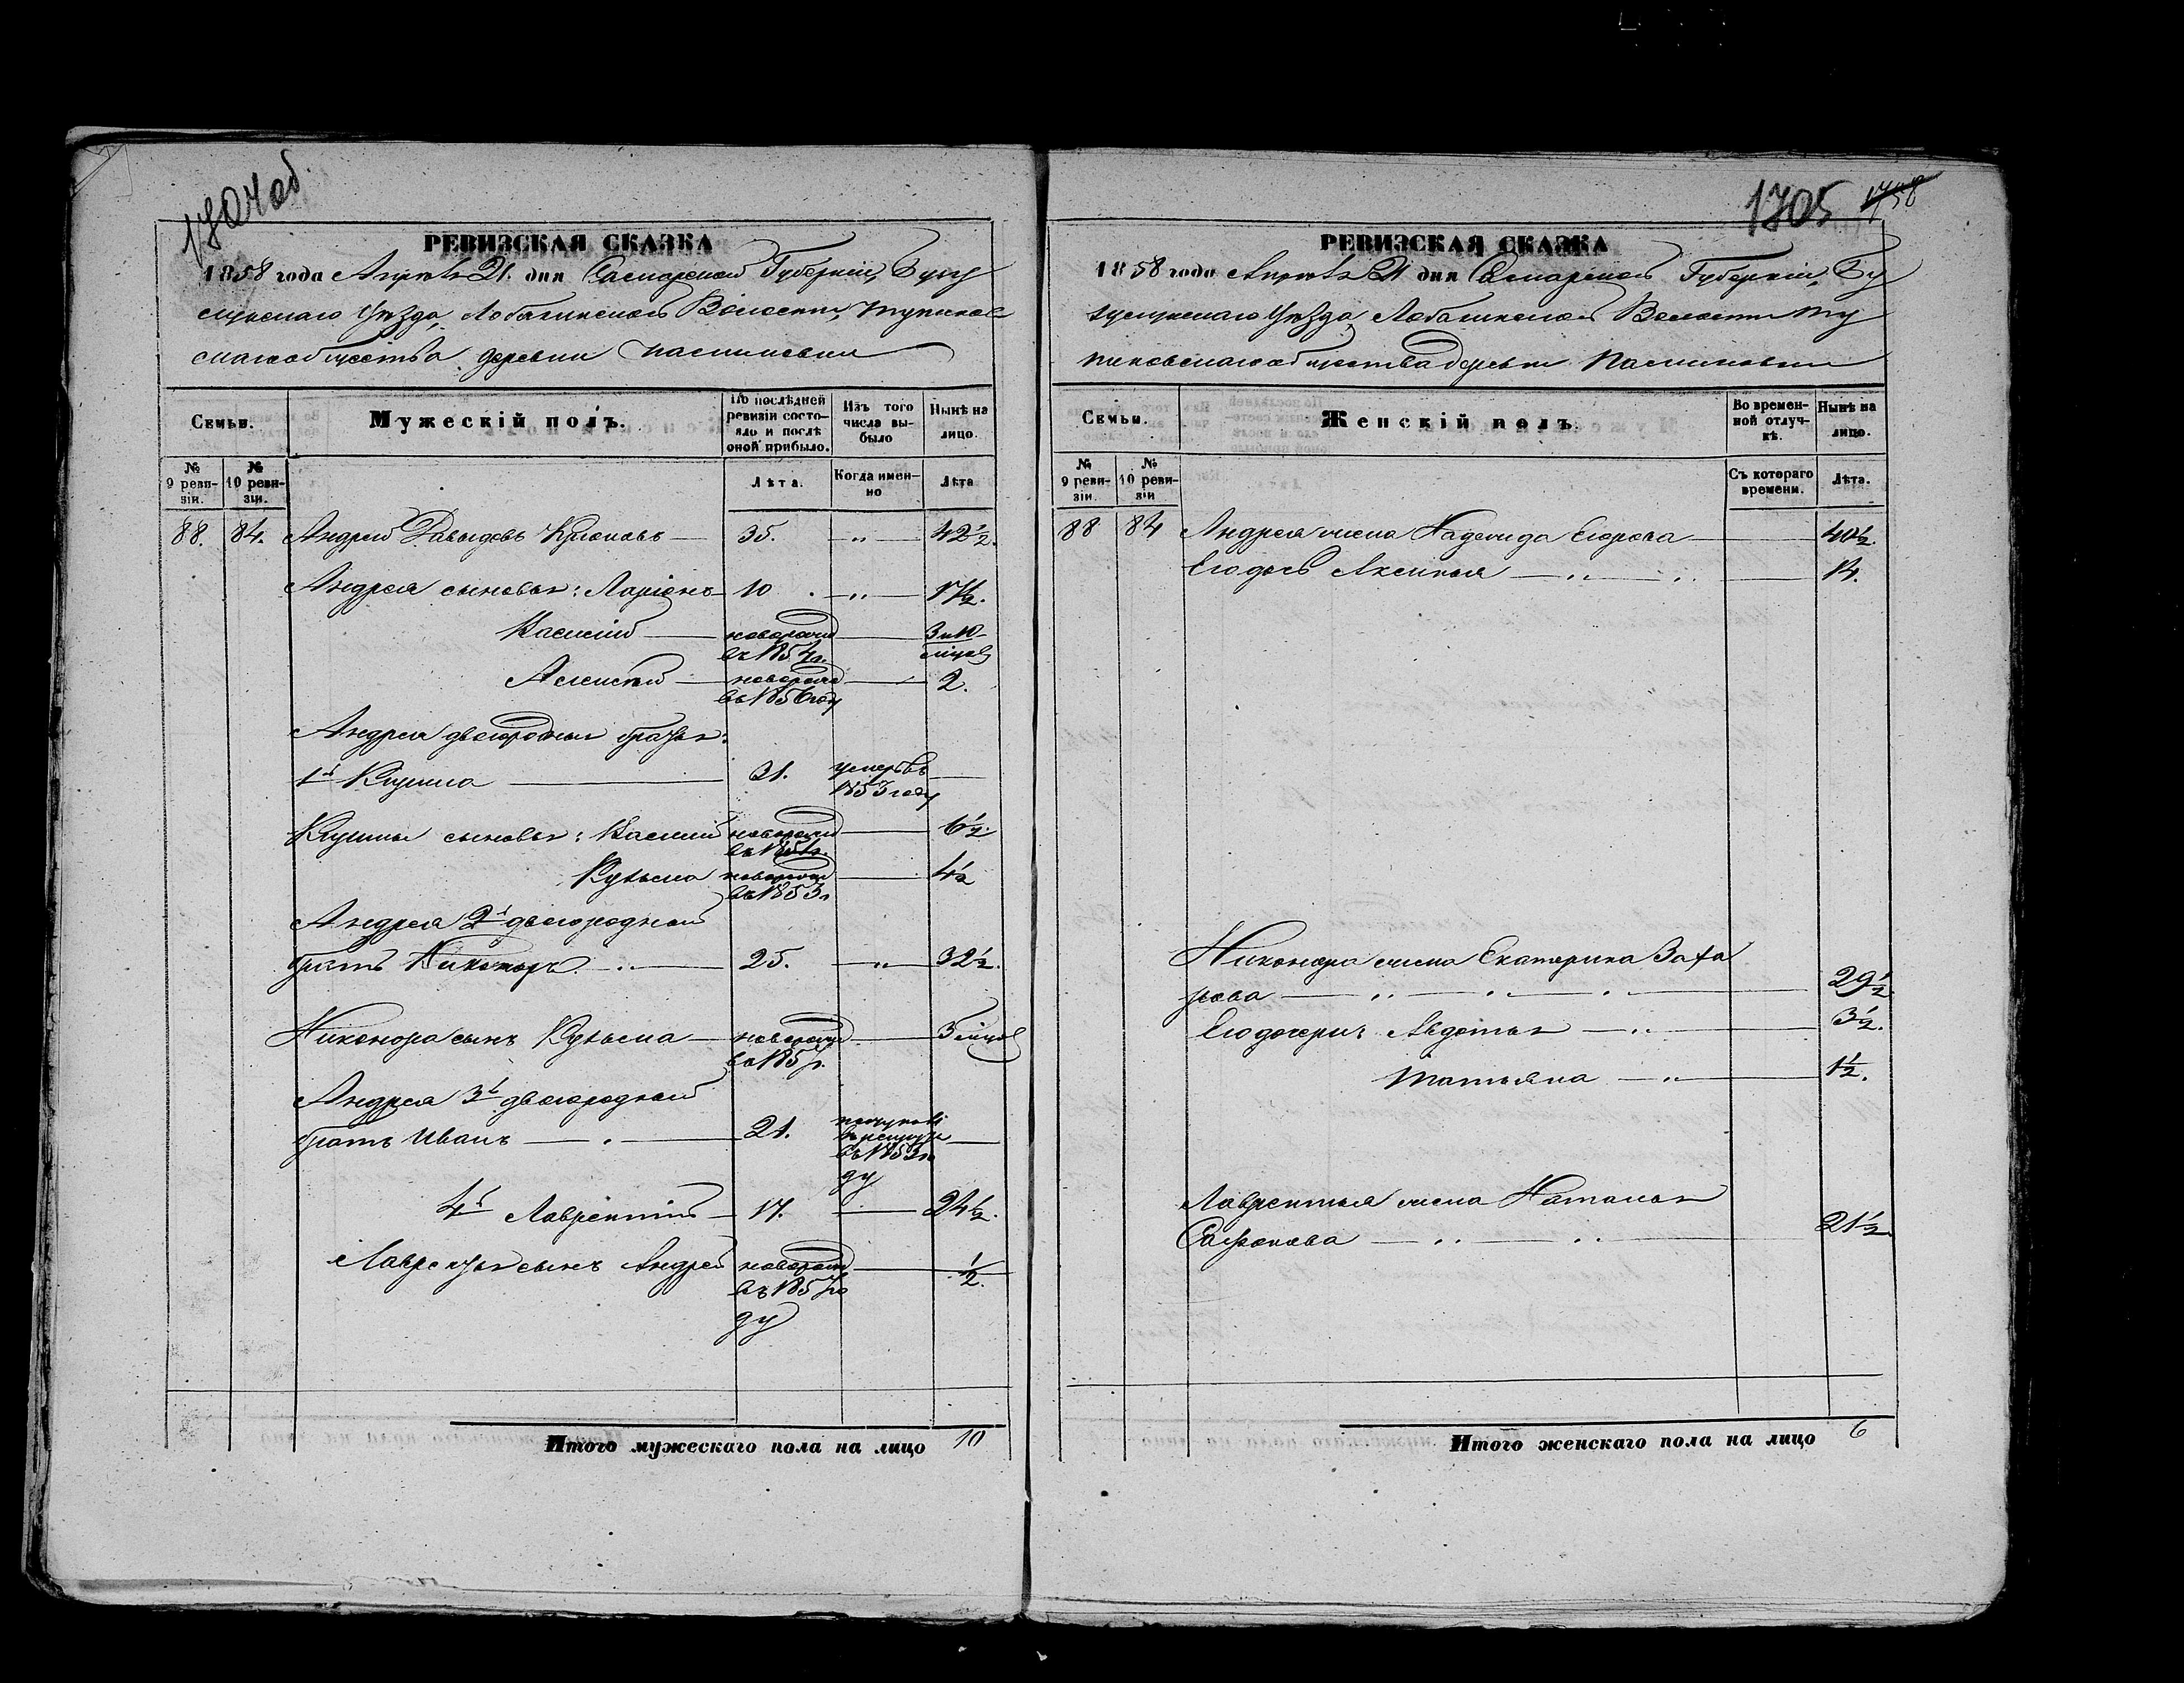 1704об.
РЕВИЗСКАЯ СКАЗКА
1858 года Апрѣля 21. дня Самарской Губерніи, Бузу
лукскаго Уѣзда, Лобазинской Волости, Тупиков
скаго общества деревни
Семьи.
Мужескій полъ.
По послѣдней ревизіи состояло и послѣ оной прибыло.
Изъ того числа выбыло
Нынѣ на лицо.
№ 9 ревизіи.
№ 10 ревизіи.
Лѣта.
Когда именно
Лѣта
88. 84. Андрей Давыдовъ Крюковъ 35. " 42½.
Андрея сыновья: Ларіонъ 10 . " 17½.
Василій новорожд 3 и 10
въ 1854г. мѣсяц
Алексѣй новорожд 2.
въ 1856 году
Андрея двоюродныя братья:
1й 31. умеръ въ
1853 году
сыновья: Василій новорожд 6½.
въ 1851г.
Кузьма новорожд 4½
въ 1853г
Андрея 2й двоюродной
братъ Никоноръ " 25. " 32½.
Никонора сынъ Кузьма новорожд 5 мѣсяц
въ 1857г.
Андрея 3й двоюродной
братъ Иванъ 21.
въ 1853 го
ду
4й Лаврентій 17. 24½.
Лаврентья сынъ Андрей новорожд ½.
въ 1857 го
ду
Итого мужескаго пола на лицо 10
1705 1758
РЕВИЗСКАЯ СКАЗКА
1858 года Апрѣля 21 дня Самарской Губерніи, Бу
зулукскаго Уѣзда, Лобазинской Волости Ту
пиковскаго общества деревни
Семьи.
Женскій полъ.
Во временной отлучкѣ.
Нынѣ на лицо.
№ 9 ревизіи.
№ 10 ревизіи
Съ котораго времени.
Лѣта.
88 84 Андрея жена Надежда Егорова 40½.
Его дочь Аксинья " " 14.
Никонора жена Екатерина Заха
рова " " " 29½
Его дочери: Авдотья " 3½.
Татьяна " 1½.
Лаврентья жена Наталья
Сафронова " " 21½
Итого женскаго пола на лицо 6